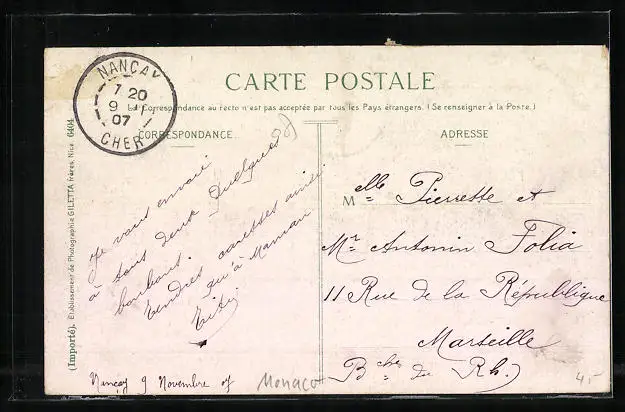 NANÇAY
7 20
9 - 11
07
CHER
CARTE POSTALE
La Correspondance au recto n'est pas acceptée par tous les Pays étrangers. (Se renseigner à la Poste.)
CORRESPONDANCE.
ADRESSE
(Importé). Etablissement de Photographie GILETTA frères, Nice 6404
Je vous envoie
à tous deux quelques
bonbons.
Tendres caresses ainsi
qu'à Maman
Titi
Nançay 9 Novembre 07
Monaco
Melle Pierrette et
Mr Antonin Folia
11 Rue de la République
Marseille
Bches du Rh.)